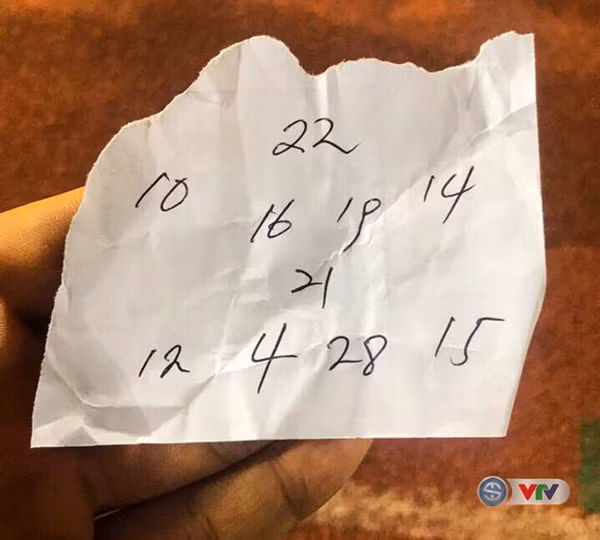 22
10 16 19 14
21
12 4 28 15
VTV